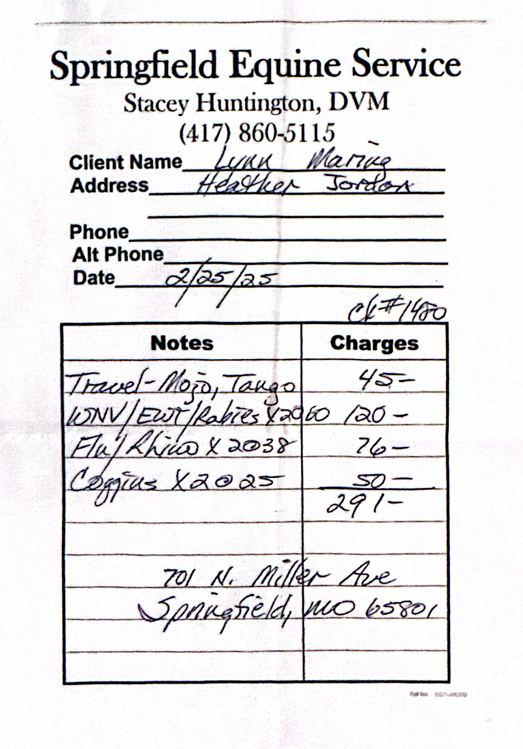 Springfield Equine Service
Stacey Huntington, DVM
(417) 860-5115
Client Name Lynn Maring
Address Heather Jordon
Phone
Alt Phone
Date 2/25/25
ck#1480
Notes Charges
Travel-Mojo, Tango 45-
WNV/EWT/Rabies X2@60 120-
Flu/Rhino X 2@38 76-
Coggins X2@25 50-
291-
701 N. Miller Ave
Springfield, MO 65801